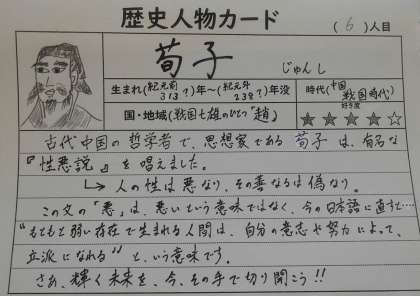 歴史人物カード
(6)人目
荀子 じゅんし
生まれ(紀元前313?)年~(紀元前238?)年没
時代(中国戦国時代)
国・地域(戦国七雄のひとつ「趙」)
好き度
★★★★☆
古代中国の哲学者で、思想家である荀子は、有名な
『性悪説』を唱えました。
↳人の性は悪なり、その善なるは偽なり。
この文の「悪」は、悪いという意味ではなく、今の日本語に直すと…
"もともと弱い存在で生まれる人間は、自分の意志や努力によって、
立派になれる"と、いう意味です。
さあ、輝く未来を、今、その手で切り開こう!!